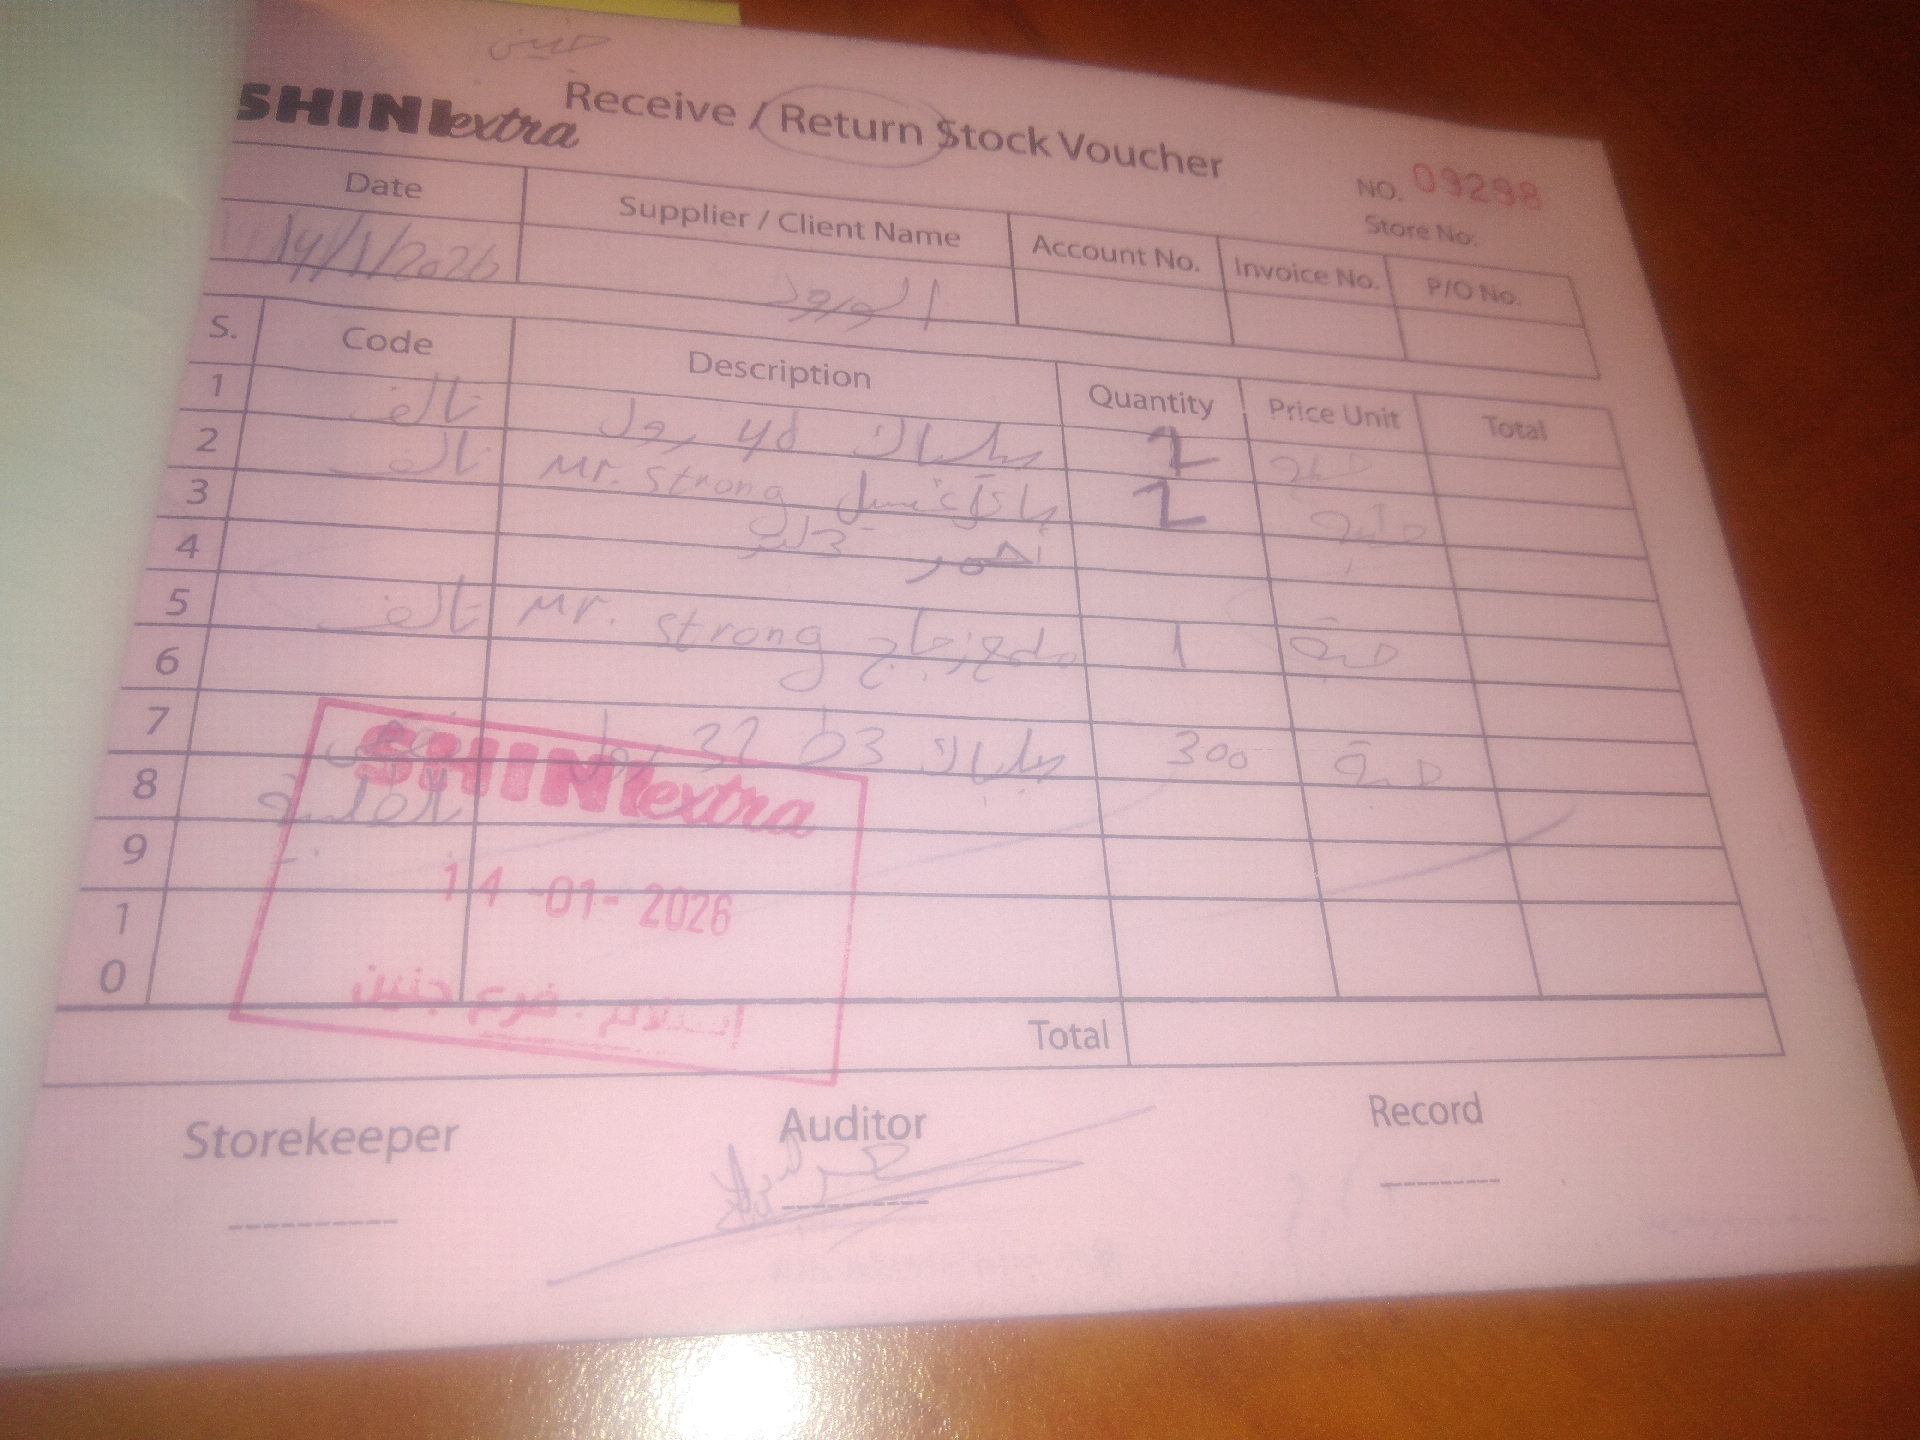 جنين
SHINI extra
Receive / Return Stock Voucher
NO. 09298
Store No:
Date Supplier / Client Name Account No. Invoice No. P/O No.
14/1/2026 الورود
S. Code Description Quantity Price Unit Total
1 تالف رول 48 2 حبة
2 تالف Mr. strong غسيل 2 حبة
3 أحمر
4
5 تالف Mr. strong ملمع زجاج 1 حبة
6
7 32 رول 300 حبة
8
9
10
Total
SHINI extra
14 -01- 2026
استلام : فرع جنين
Storekeeper Auditor Record